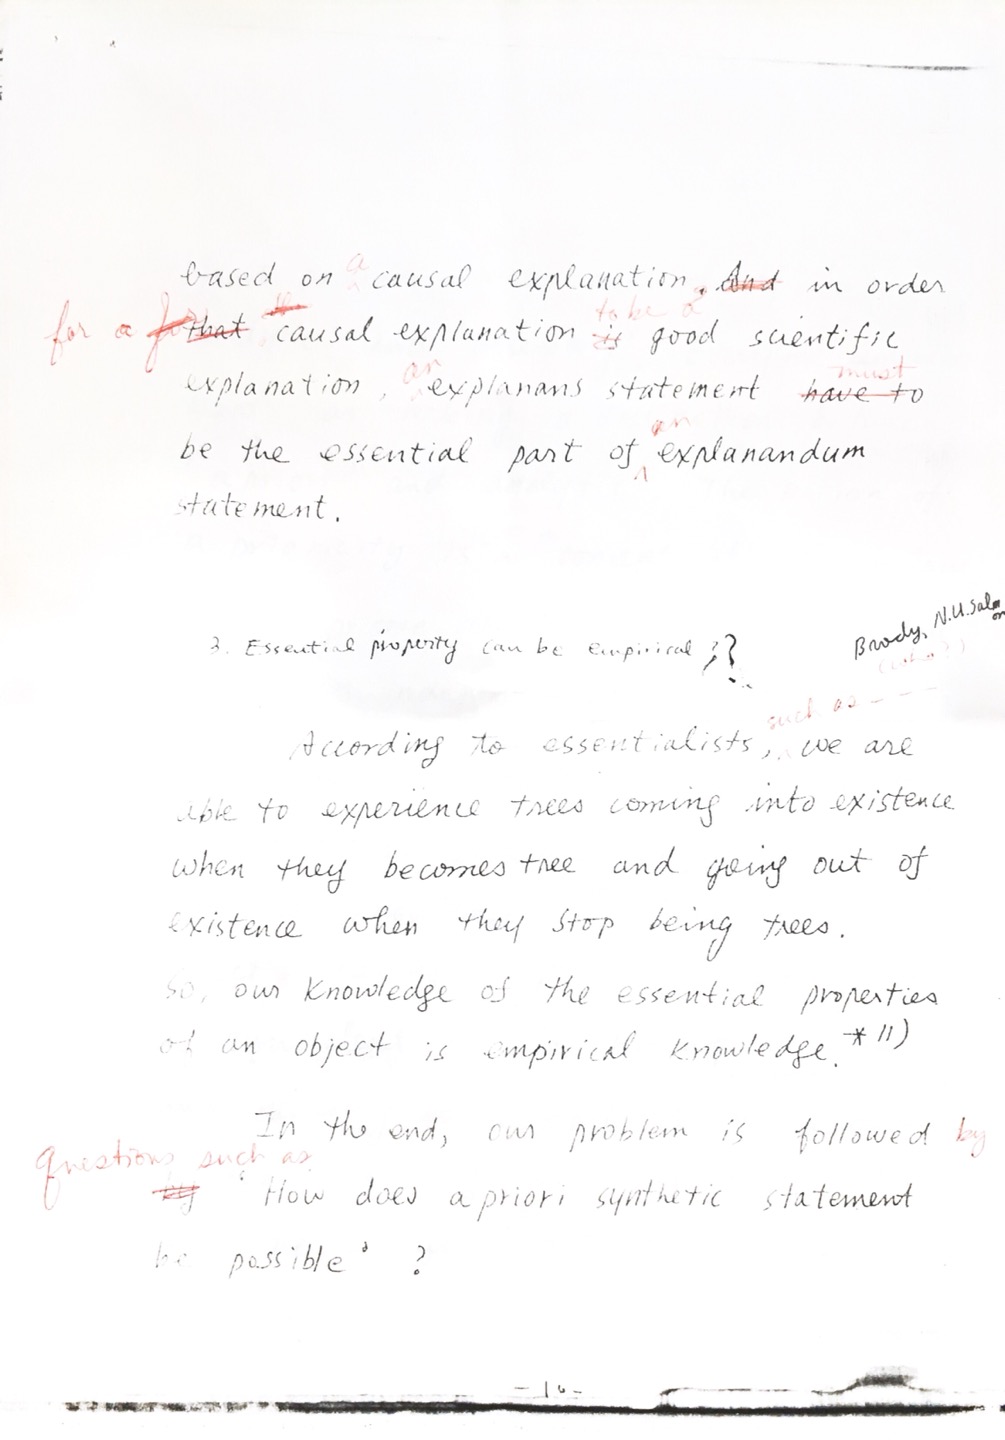 based on a causal explanation. And in order
for a that causal explanation is take a good scientific
explanation, an explanans statement have to must
be the essential part of an explanandum
statement.
Brody, N.U. Salmon
(who?)
3. Essential property can be empirical ;?
such as - - -
According to essentialists, we are
able to experience trees coming into existence
when they becomes tree and going out of
existence when they stop being trees.
So, our knowledge of the essential properties
of an object is empirical knowledge. *11)
In the end, our problem is followed by
questions such as
by 'How does a priori synthetic statement
be possible' ?
-10-